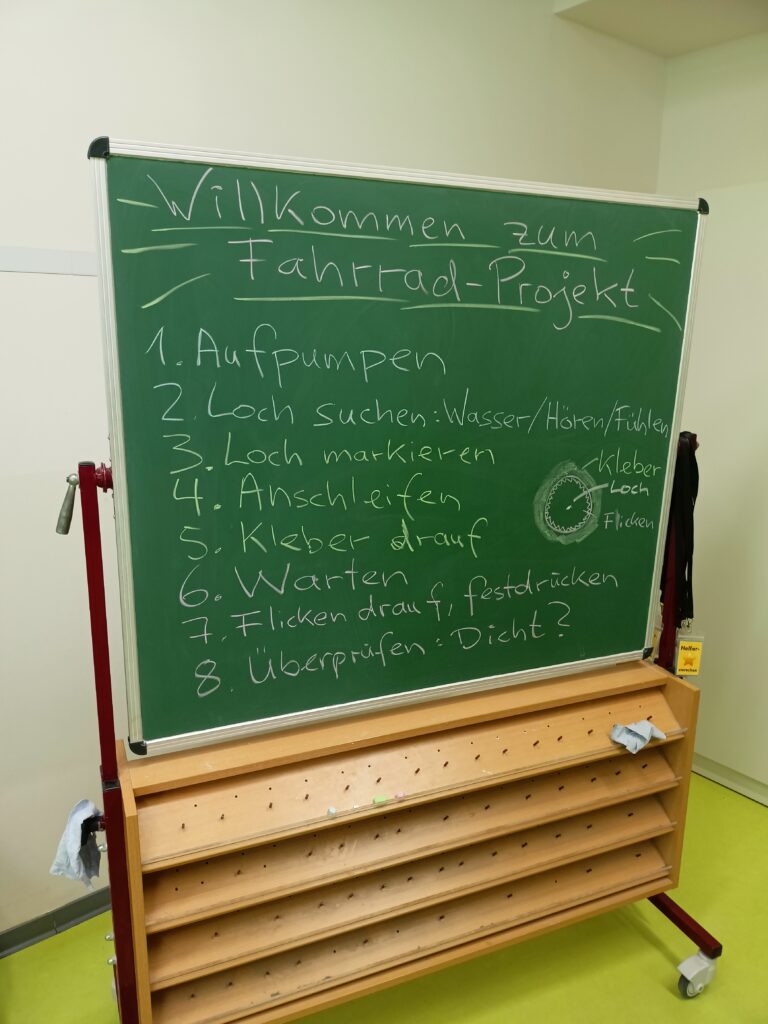 Willkommen zum
Fahrrad-Projekt
1. Aufpumpen
2. Loch suchen: Wasser/Hören/Fühlen
3. Loch markieren
4. Anschleifen
5. Kleber drauf
6. Warten
7. Flicken drauf, festdrücken
8. Überprüfen: Dicht?
Kleber
Loch
Flicken
Helfer-